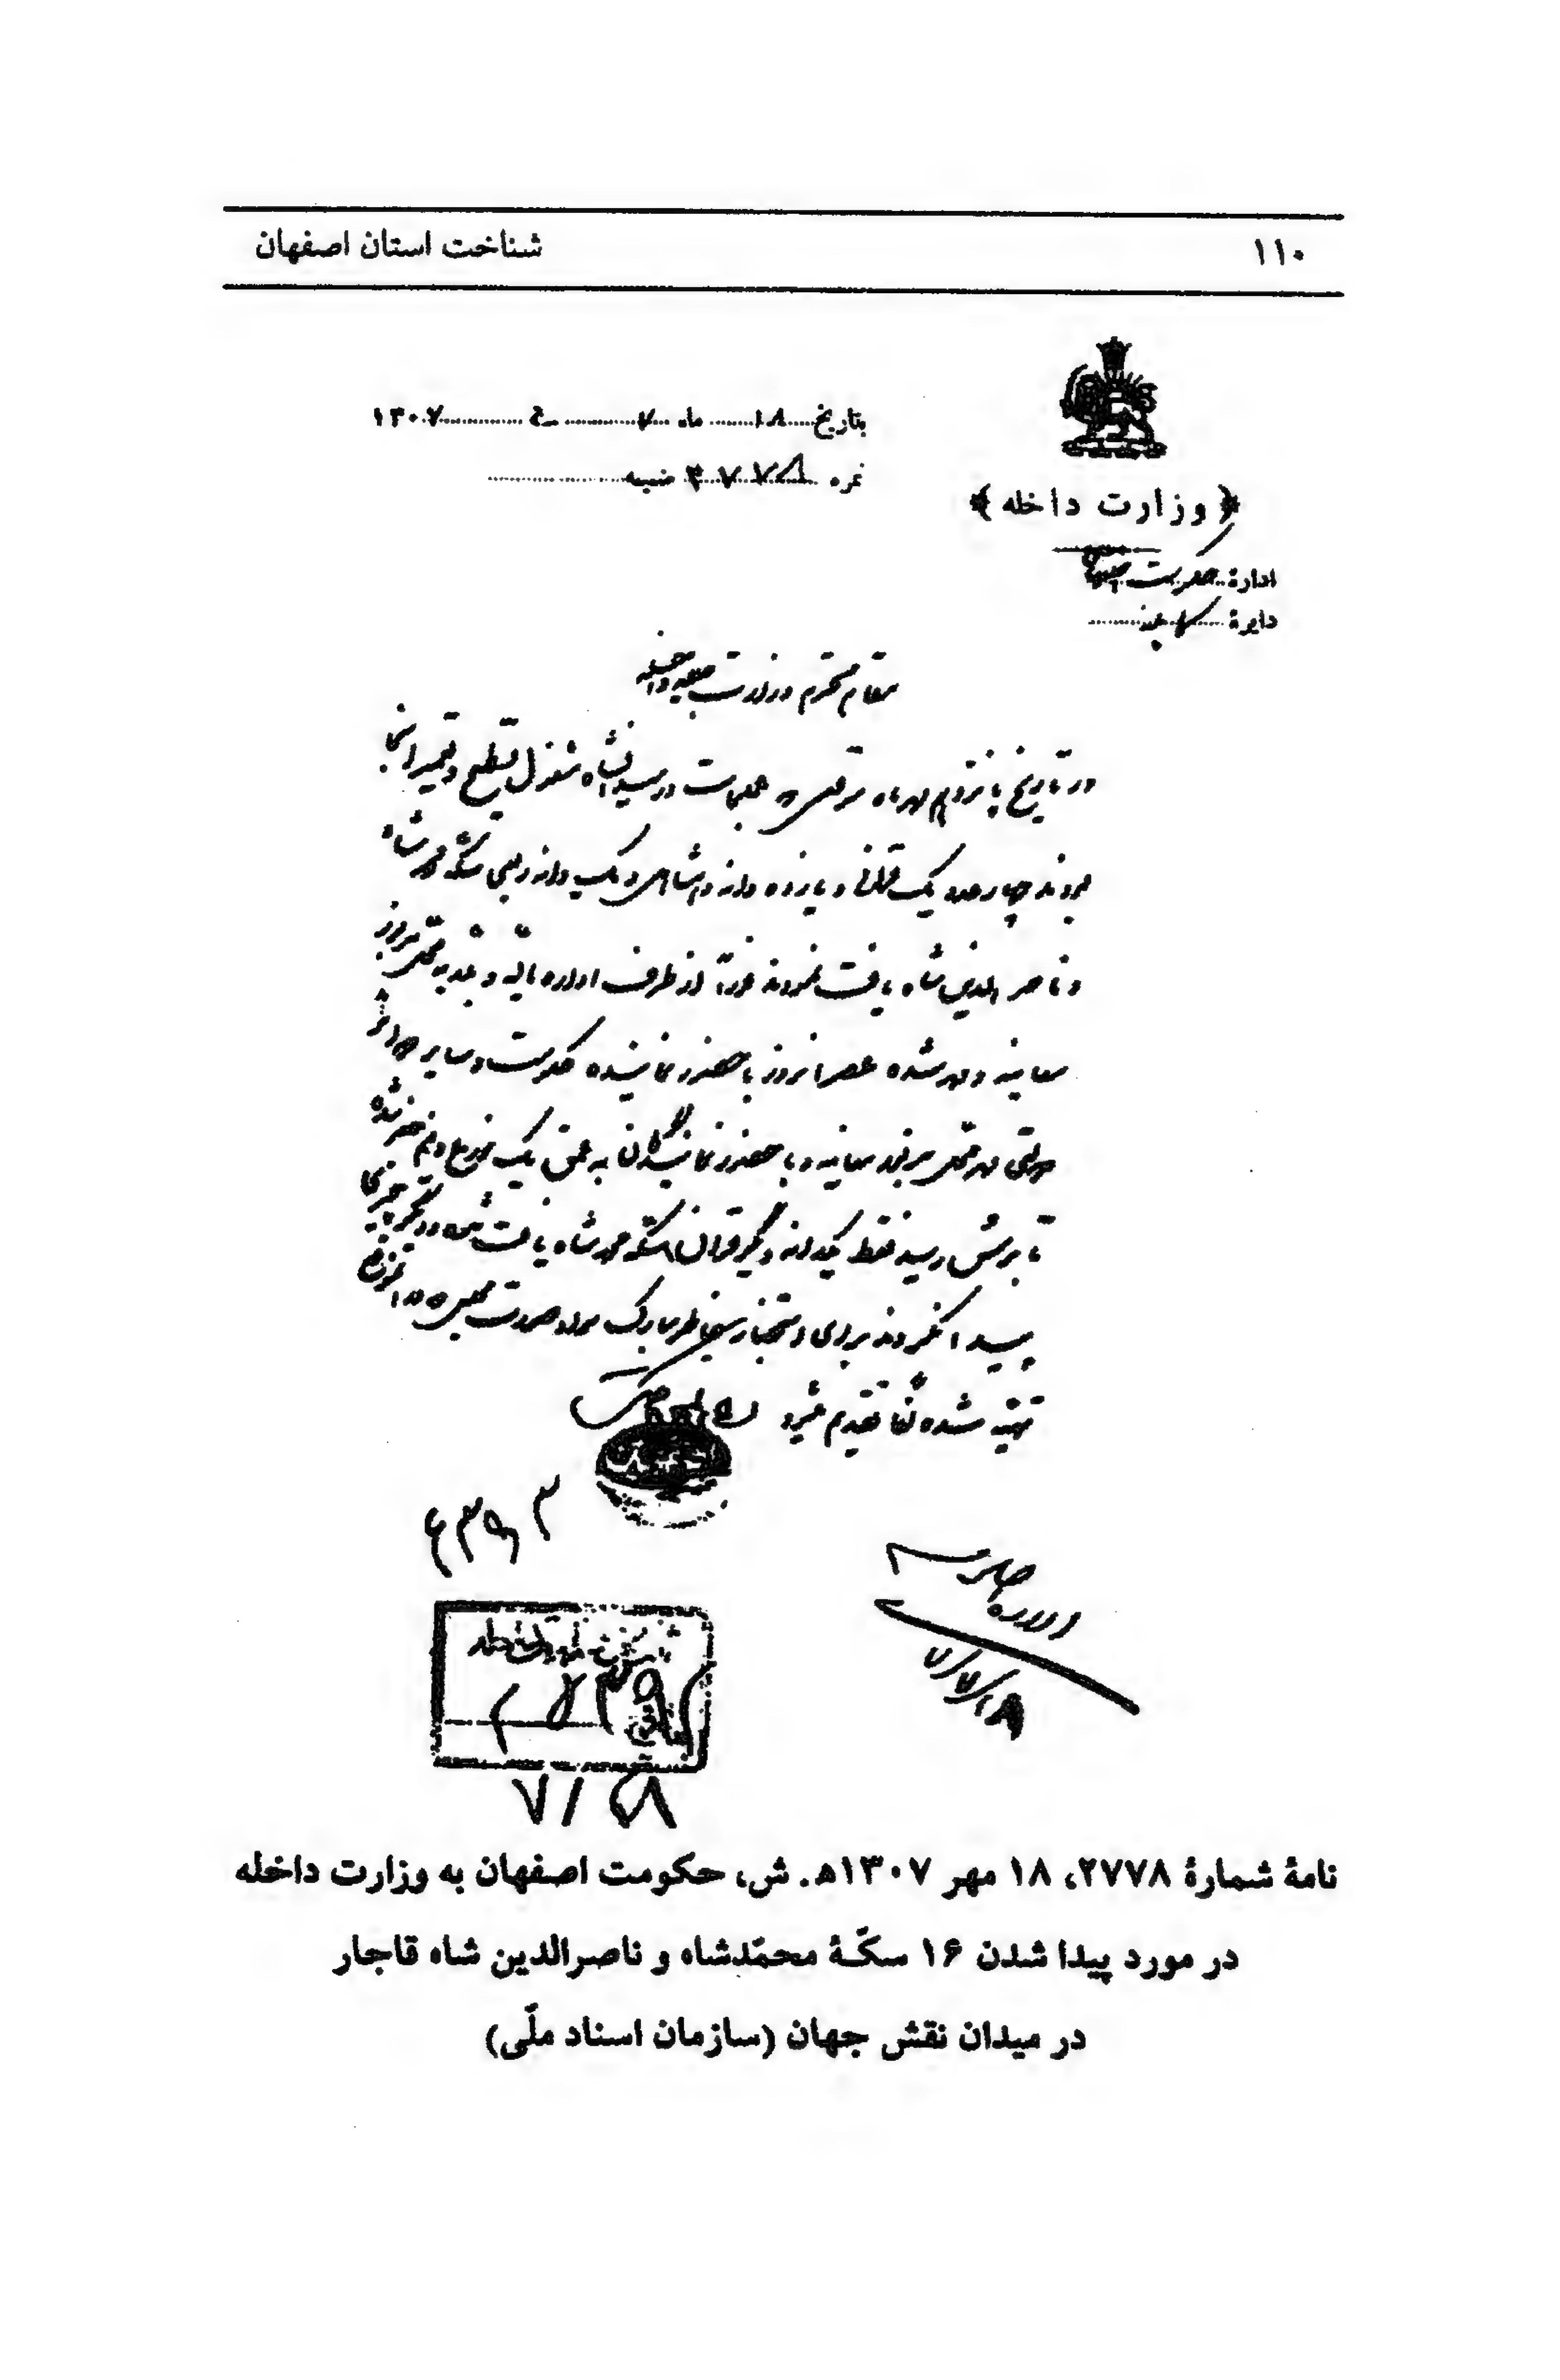 ۱۱۰
شناخت استان اصفهان
بتاریخ ۱۸ ماه ۷ ۱۳۰۷
نمره ۲۷۷۸ ضمیمه
﴿ وزارت داخله ﴾
ادارهٔ حکومت اصفهان
دایرهٔ کابینه
مقام محترم وزارت جلیله داخله
در تاریخ پانزدهم مهرماه موقعی که عملجات در میدان شاه مشغول تسطیح و تعمیر آنجا
بودند چهار عدد یک قرانی و یازده دانه دهشاهی و یک دانه ربعی سکه محمد شاه
و ناصرالدین شاه یافت نمودند فوراً از طرف اداره مالیه و بلدیه محل مزبور
معاینه و مهر شده عصر امروز با حضور نماینده حکومت و سایر دوائر
دولتی مهر محل مزبور معاینه و با حضور نمایندگان به عمق یک ذرع و نیم حفر شده
تا برسش رسید فقط یکدانه دیگر قران سکه محمد شاه یافت شده و دیگر چیزی
پیدا نکردند برای استحضار خاطر مبارک سواد صورت مجلس که در این موضوع
تهیه شده لفاً تقدیم میشود
نامهٔ شمارهٔ ۲۷۷۸، ۱۸ مهر ۱۳۰۷ه‍. ش، حکومت اصفهان به وزارت داخله
در مورد پیدا شدن ۱۶ سکّهٔ محمّدشاه و ناصرالدین شاه قاجار
در میدان نقش جهان (سازمان اسناد ملّی)